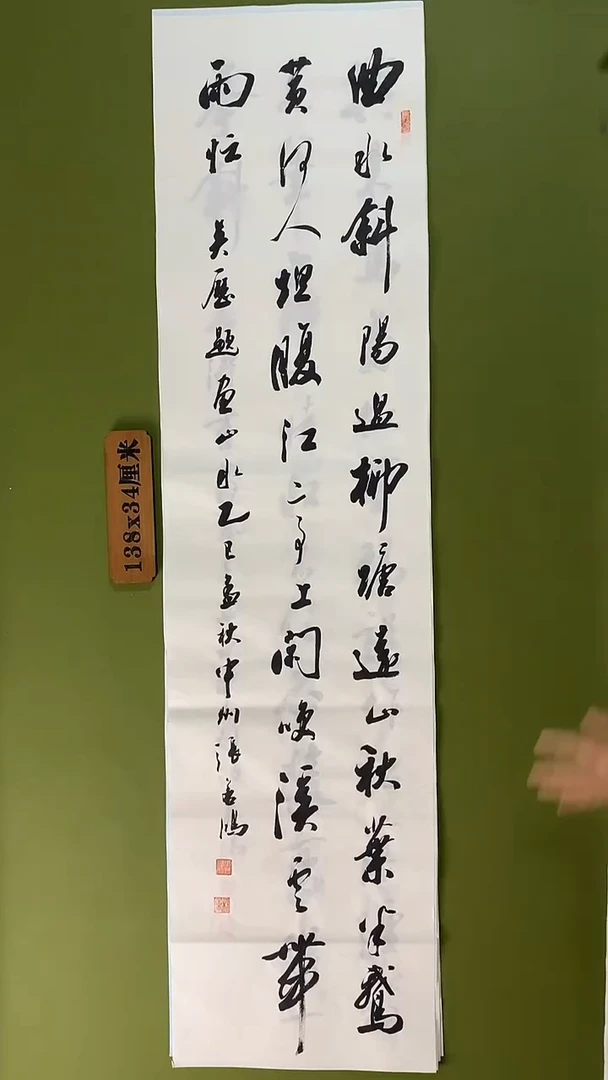 曲水斜陽過柳塘遠山秋葉半鵝
黄何人坦腹江亭上閑喚溪雲帶
雨忙 吴歷題画山水乙巳孟秋中州張善鴻
138x34厘米